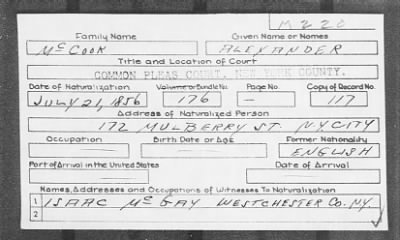 M220
Family Name Given Name or Names
McCook ALEXANDER
Title and Location of Court
COMMON PLEAS COURT, NEW YORK COUNTY.
Date of Naturalization Volume or Bundle No. Page No. Copy of Record No.
JULY 21, 1856 176 — 117
Address of Naturalized Person
172 MULBERRY ST. NYCITY
Occupation Birth Date or Age Former Nationality
ENGLISH
Port of Arrival in the United States Date of Arrival
Names, Addresses and Occupations of Witnesses To Naturalization
1 ISAAC McGAY WESTCHESTER CO. N.Y.
2